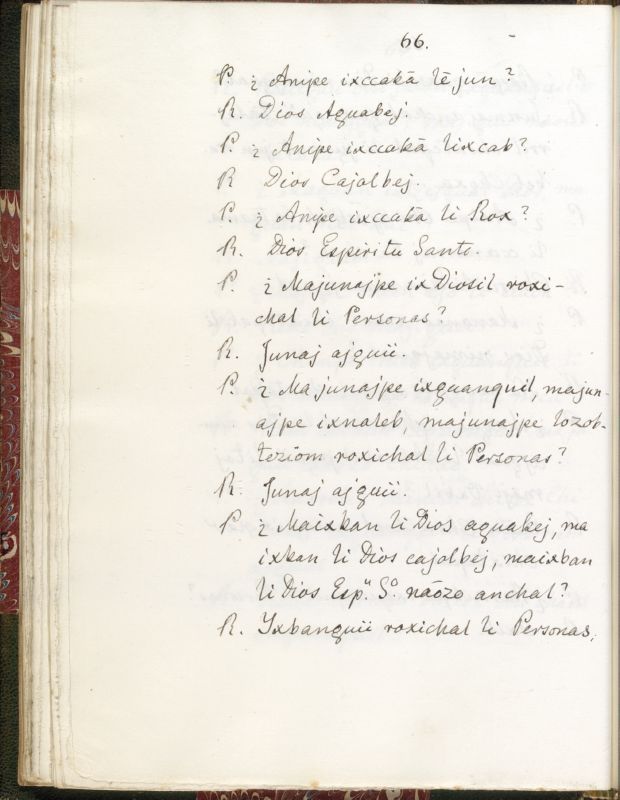 66.
P. ¿ Anipe ixccakā lē jun?
R. Dios Aguabej.
P. ¿ Anipe ixccakā lixcab?
R Dios Cajolbej.
P. ¿ Anipe ixccakā li Rox?
R. Dios Espiritu Santo.
P. ¿ Majunajpe ix Diosil roxi-
chal li Personas?
R. Junaj ajguii.
P. ¿ Majunajpe ixguanquil, majun-
ajpe ixnaleb, majunajpe lozob-
teziōm roxichal li Personas?
R. Junaj ajguii.
P. ¿ Maixkan li Dios aguakej, ma
ixkan li Dios cajolbej, maixban
li Dios Esp.u S.o nāoze anchal?
R. Yxbanguii roxichal li Personas.